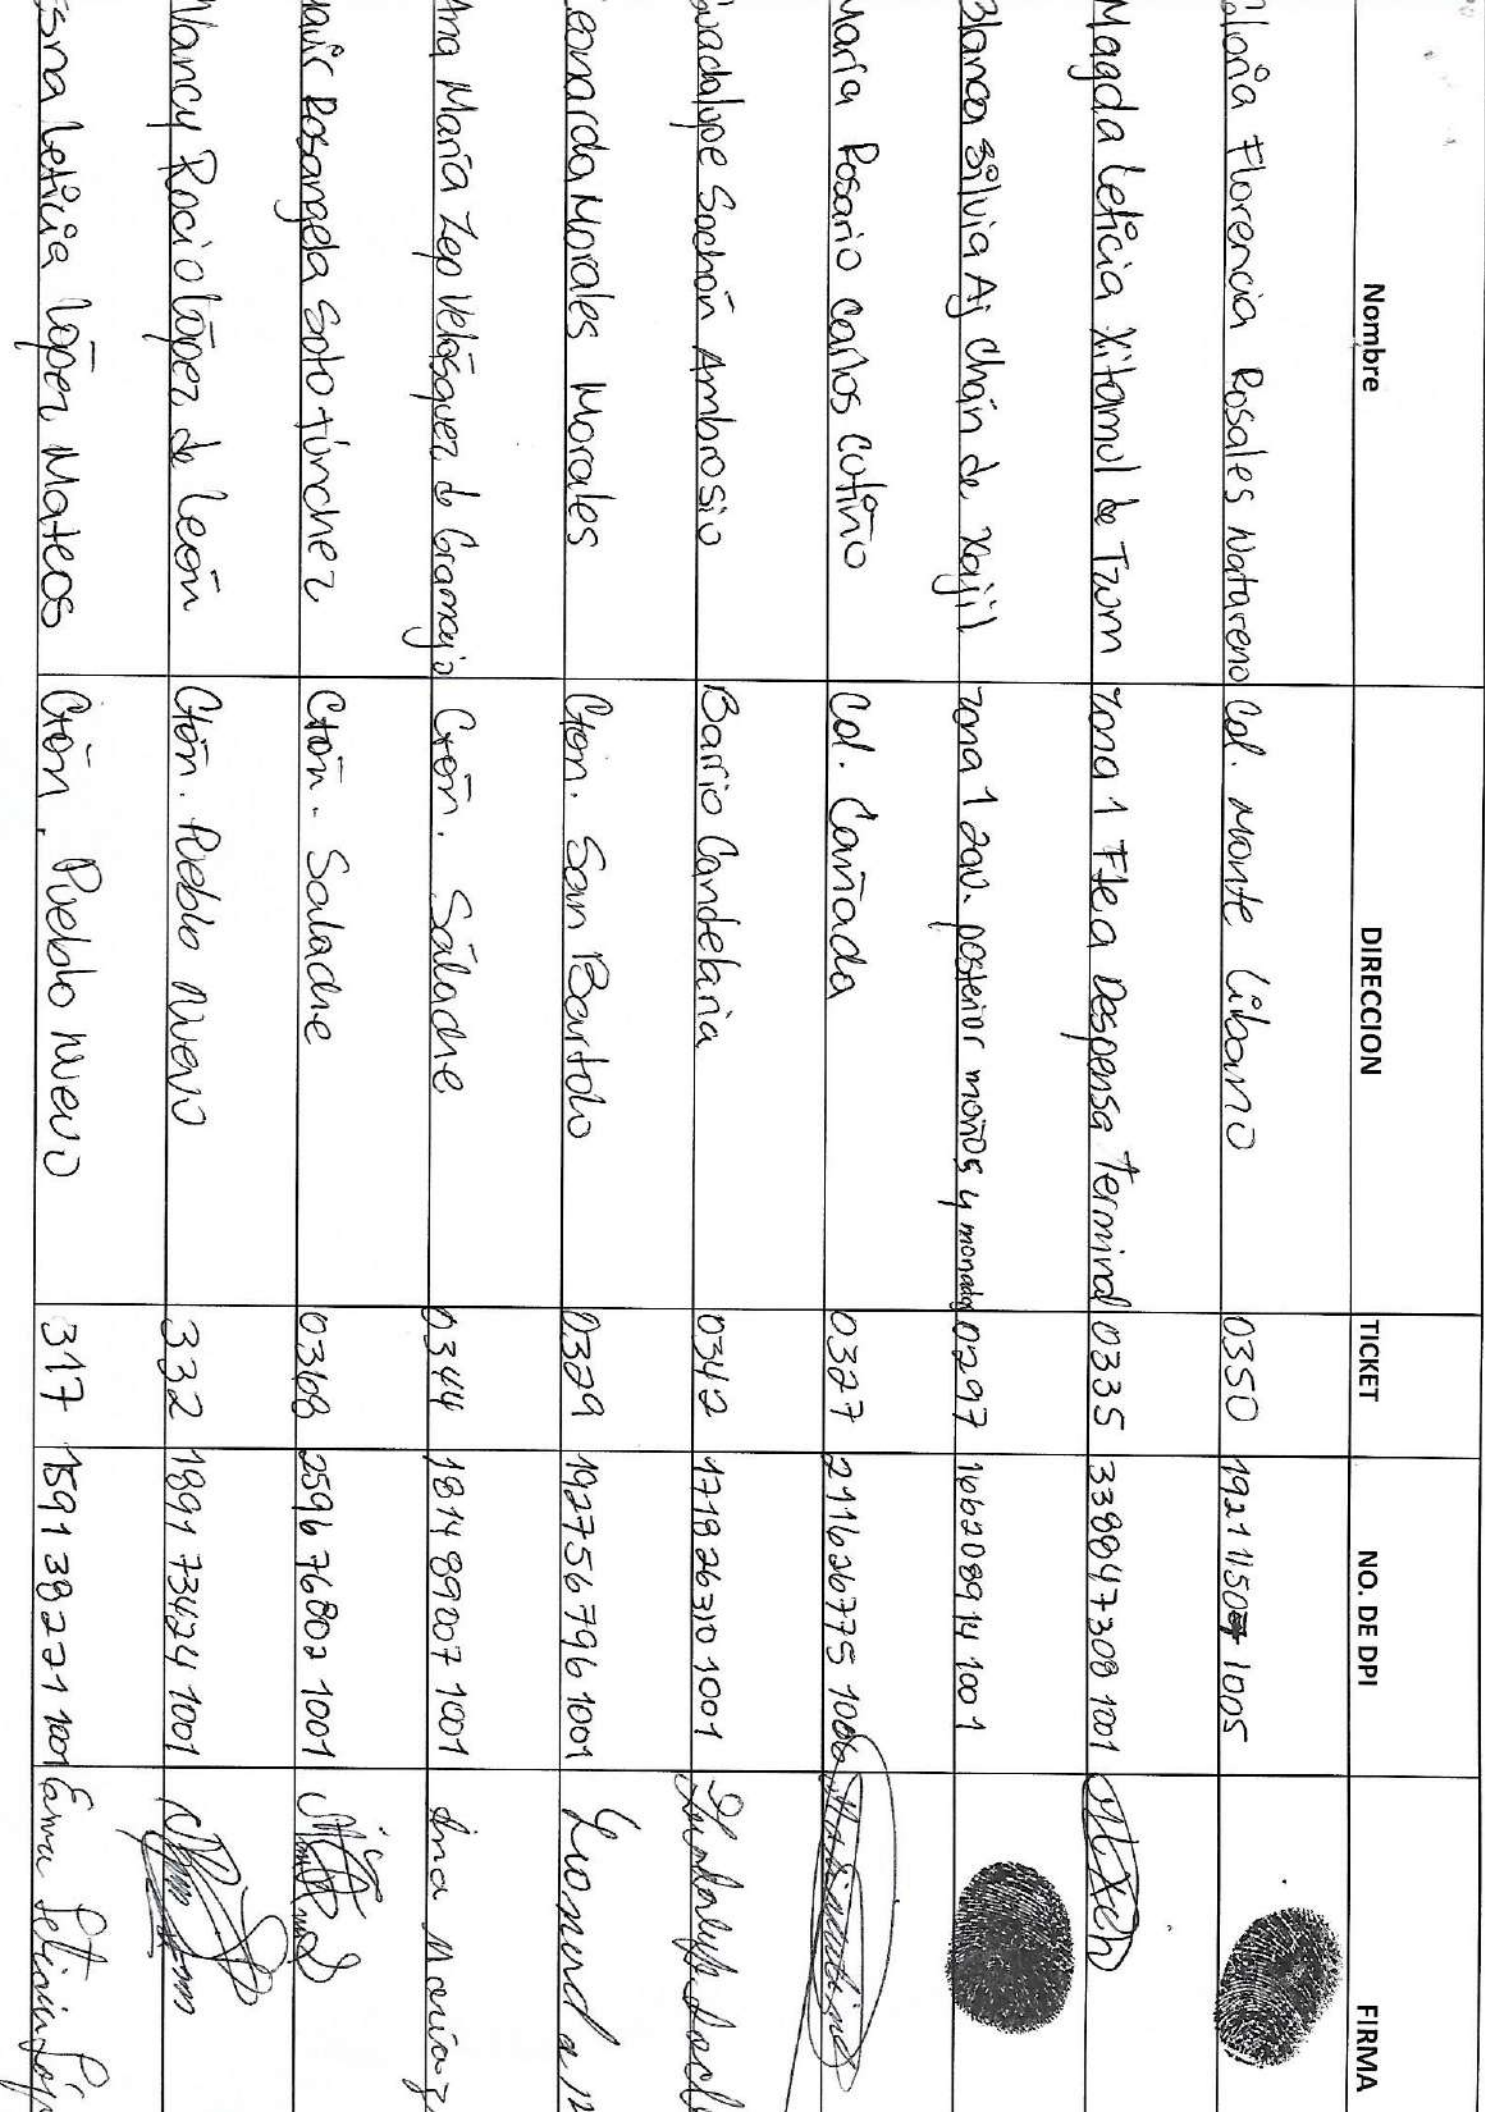 Nombre DIRECCION TICKET NO. DE DPI FIRMA
Florencia Rosales Natareno Col. Monte Líbano 0350 1921 11507 1005
Magda Leticia Xitamul de Tzum zona 1 Fte a Despensa Terminal 0335 3388 47308 1001
Blanca Silvia Aj Chán de Xajíl zona 1 2av. posterior moños y monadas 0297 1662 08914 1001
María Rosario Carlos Cutiño Col. Cañada 0327 2116 26775 1006
Guadalupe Sochón Ambrosio Barrio Candelaria 0342 1718 26310 1001
Leonarda Morales Morales Ctón. San Bartolo 0329 1927 56796 1001 Leonarda
Ana María Zep Velásquez de Gramajo Ctón. Saláche 0344 1814 89007 1001 Ana María
Rosangela Soto Túnchez Ctón. Salache 03168 2596 76802 1001
Nancy Rocio López de León Ctón. Pueblo Nuevo 332 1891 73424 1001
Leticia López Mateos Ctón. Pueblo Nuevo 317 1591 38221 1001 Leticia